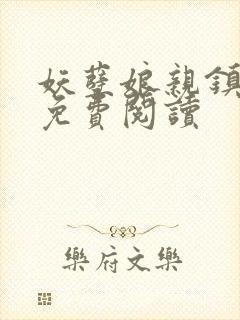 妖孽娘親鎮
免費閱讀
樂府文樂